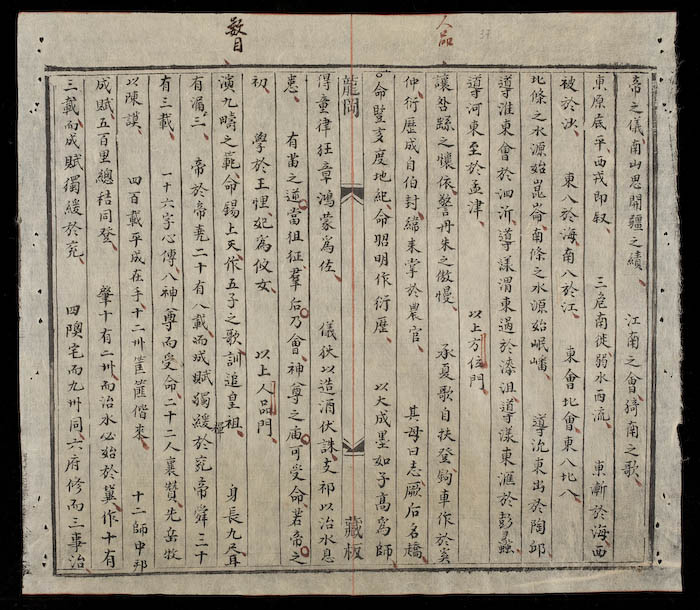 人品
數目
37
帝之儀、南山思開疆之績、 江南之會、猗南之歌、
東原底平、西戎即叙、 三危南徙、弱水西流、 東漸於海、西
被於流、 東入於海、南入於江、 東會北會、東入北入、
北條之水源始崑崙、南條之水源始岷嶓、 導沇東出於陶邱、
導淮東會於泗沂、導渭東過於漆沮、導漾東滙於彭蠡、
導河東至於孟津、 以上方位門、
讓咎繇之懷依、警丹朱之傲慢、 承夏歌自扶登、鈎車作於奚
仲、衍歷成自伯封、緯來掌於農官、 其母曰志、厥后名嬌、
命豎亥度地紀、命昭明作衍歷、 以大成墨如子高爲師、
龍岡 藏板
得童律狂章鴻蒙爲佐、 儀狄以造酒伏誅、支祁以治水息
患、 有苗之逆當徂征、羣后乃會、神尊之廟可受命、若帝之
初、 學於王悝、妃爲攸女、 以上人品門、
演九疇之範、命錫上天、作五子之歌、訓追皇祖、 身長九尺
有漏三、 帝於帝堯二十有八載而成賦獨緩於兖、帝舜三十
有三載、 一十六字心傳、八神尊而受命、二十二人襄贊、先岳牧
以陳謨、 四百載平成在手、十二州筐篚偕來、 十二師中邦
成賦、五百里總秸同登、 肇十有二州而治水必始於冀、作十有
三載而成賦獨緩於兖、 四隩宅而九州同、六府修而三事治、